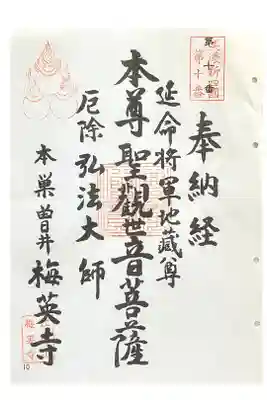 第十番
奉納経
延命将軍地蔵尊
本尊聖觀世音菩薩
厄除弘法大師
本巣曽井梅英寺
梅英寺
10